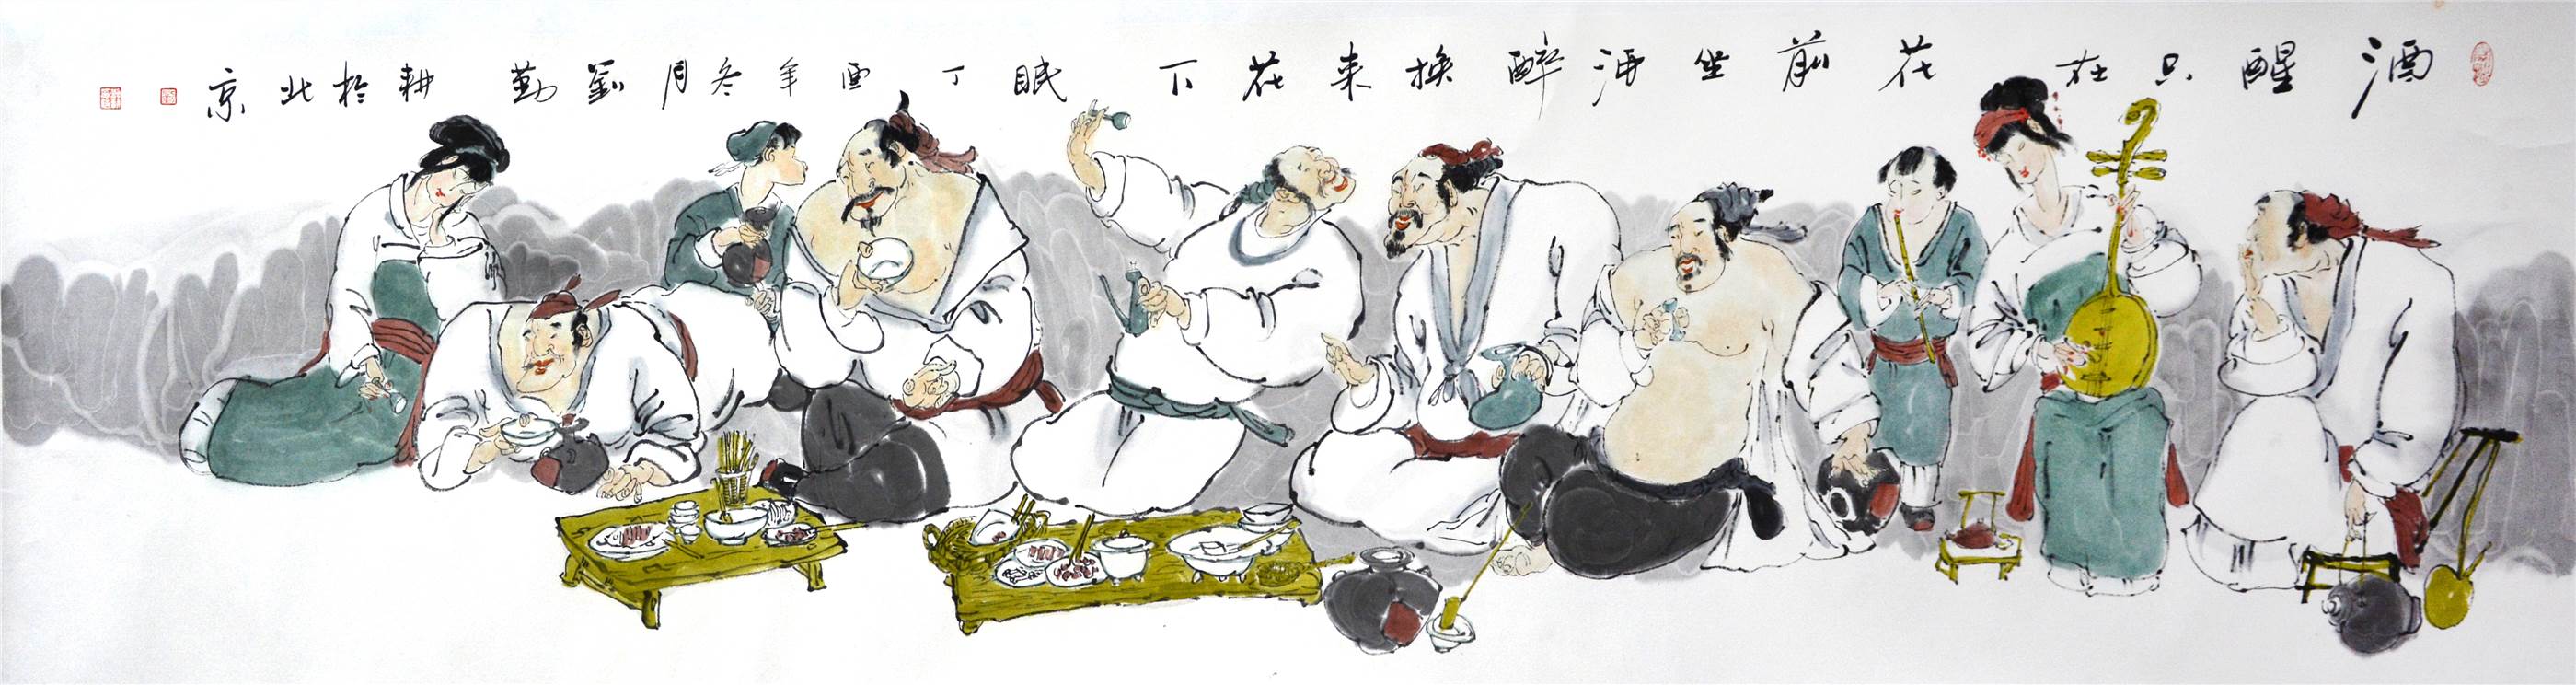 酒醒只在花前坐酒醉换来花下眠丁酉年冬月劉勤耕於北京